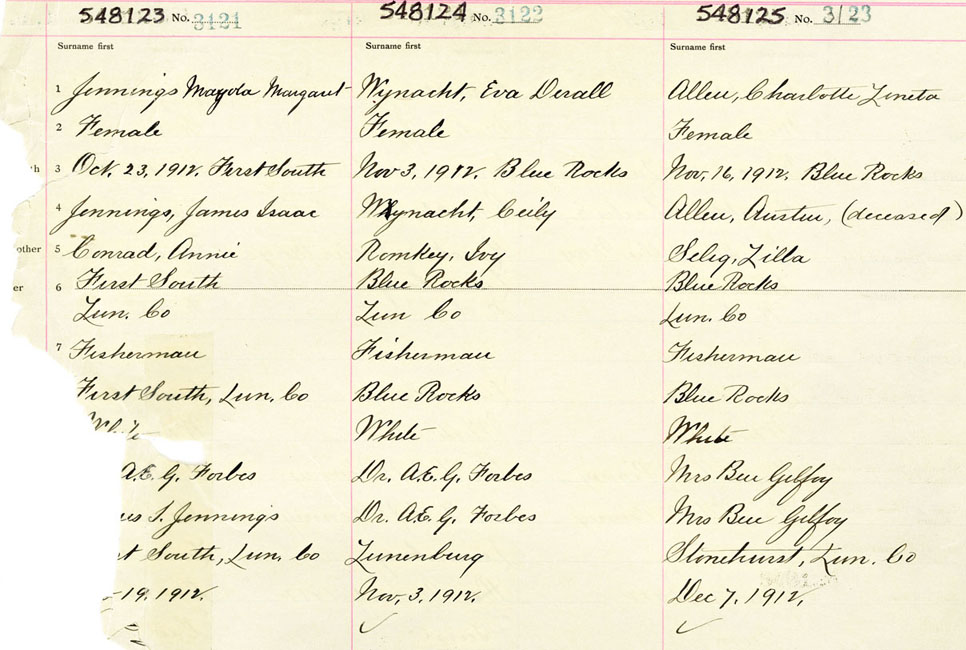 548123 No. 3121 548124 No. 3122 548125 No. 3123
Surname first Surname first Surname first
1 Jennings Mayola Margaret Wynacht, Eva Derall Allen, Charlotte Lineta
2 Female Female Female
h 3 Oct. 23, 1912. First South Nov 3, 1912. Blue Rocks Nov. 16, 1912. Blue Rocks
4 Jennings, James Isaac Wynacht, Ceily Allen, Austin, (deceased)
other 5 Conrad, Annie Romkey, Ivy Selig, Zilla
er 6 First South Blue Rocks Blue Rocks
Lun. Co Lun Co Lun. Co
7 Fisherman Fisherman Fisherman
First South, Lun. Co Blue Rocks Blue Rocks
White White White
A.E.G. Forbes Dr. A.E.G. Forbes Mrs Ben Gelfoy
us I. Jennings Dr. A.E.G. Forbes Mrs Ben Gelfoy
st South, Lun. Co Lunenburg Stonehurst, Lun. Co
-19. 1912. Nov. 3. 1912. Dec 7. 1912.